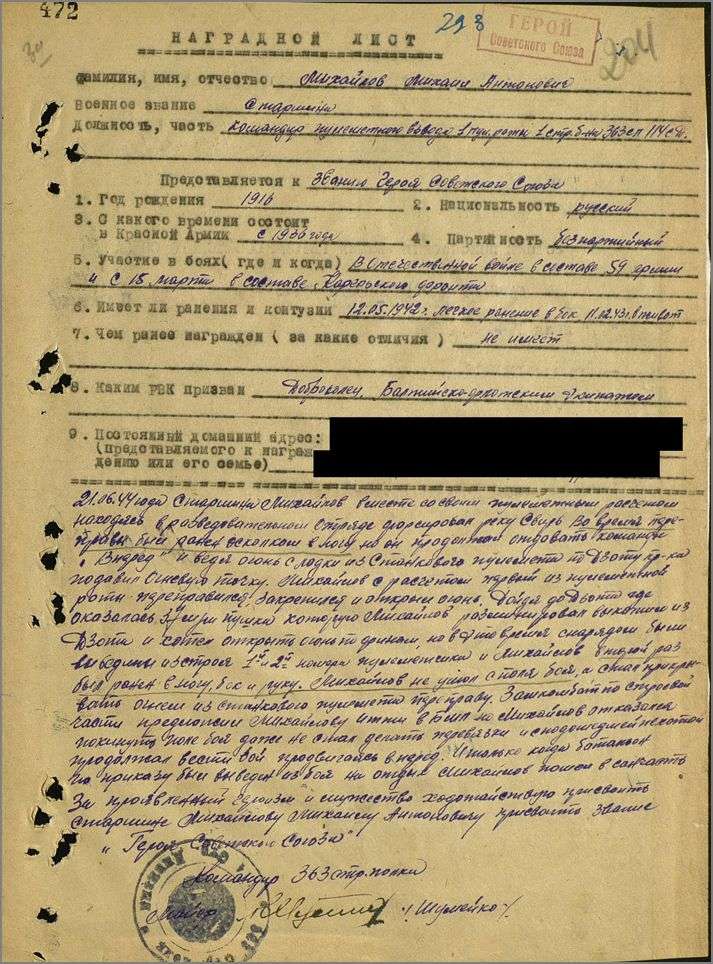 472
293
ГЕРОЙ
Советского Союза
204
НАГРАДНОЙ ЛИСТ
Фамилия, имя, отчество Михайлов Михаил Антонович
Военное звание Старшина
Должность, часть командир пулеметного взвода 1 пул. роты 1 стр. б-на 363 сп 114 сд.
Представляется к Званию Героя Советского Союза
1. Год рождения 1916 2. Национальность русский
3. С какого времени состоит
в Красной Армии с 1936 года 4. Партийность безпартийный
5. Участие в боях( где и когда) В Отечественной войне в составе 59 армии
и с 15 марта в составе Карельского фронта
6. Имеет ли ранения и контузии 12.05.1942 г. легкое ранение в бок 11.02.43 г. в живот
7. Чем ранее награжден ( за какие отличия ) не имеет
8. Каким РВК призван Доброволец, Балтийско-флотским Экипажем
9. Постоянный домашний адрес:
(представляемого к награж
дению или его семье)
21.06.44 года Старшина Михайлов вместе со своим пулеметным расчетом
находясь в разведовательном отряде форсировал реку Свирь во время пере-
правы был ранен осколком в ногу но он продолжал отдавать команду
"Вперед" и ведя огонь с лодки из Станкового пулемета по Дзоту пр-ка
подавил огневую точку. Михайлов с расчетом первый из пулеметной
роты переправился, закрепился и открыл огонь. Дойдя до Дзота где
оказалась пушка которую Михайлов разминировал выкатил из
Дзота и хотел открыть огонь но в это время снарядом были
выведены из строя 1й и 2й номера пулеметчики и Михайлов раз
был ранен в ногу, бок и руку. Михайлов не ушел с поля боя, а стал прикры-
вать огнем из станкового пулемета переправу. Зам комбат по строевой
части предложил Михайлову итти в но Михайлов отказался
покинуть поле боя даже не стал делать перевязки и с подошедшей пехотой
продолжал вести бой продвигаясь вперед. И только когда батальон
по приказу был выведен из боя на отдых Михайлов пошел в санчасть
За проявленный героизм и мужество ходотайствую присвоить
Старшине Михайлову Михаилу Антоновичу присвоить звание
"Герой Советского Союза"
Командир 363 стр. полка
Майор /Шумейко/